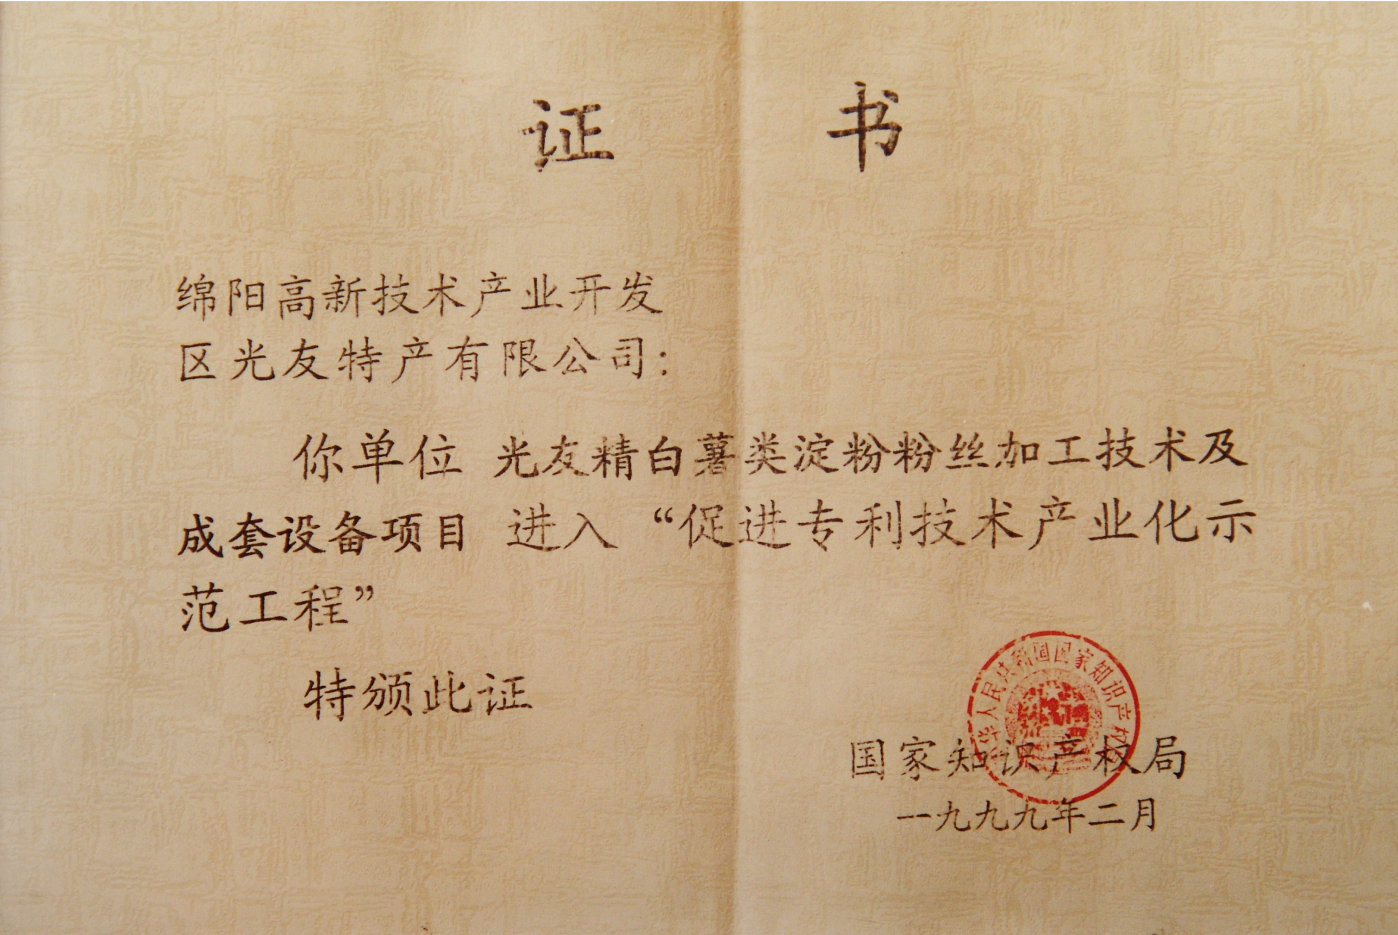 证 书
绵阳高新技术产业开发
区光友特产有限公司：
你单位 光友精白薯类淀粉粉丝加工技术及
成套设备项目 进入 “促进专利技术产业化示
范工程”
特颁此证
华人民共和国国家知识产权
国家知识产权局
一九九九年二月